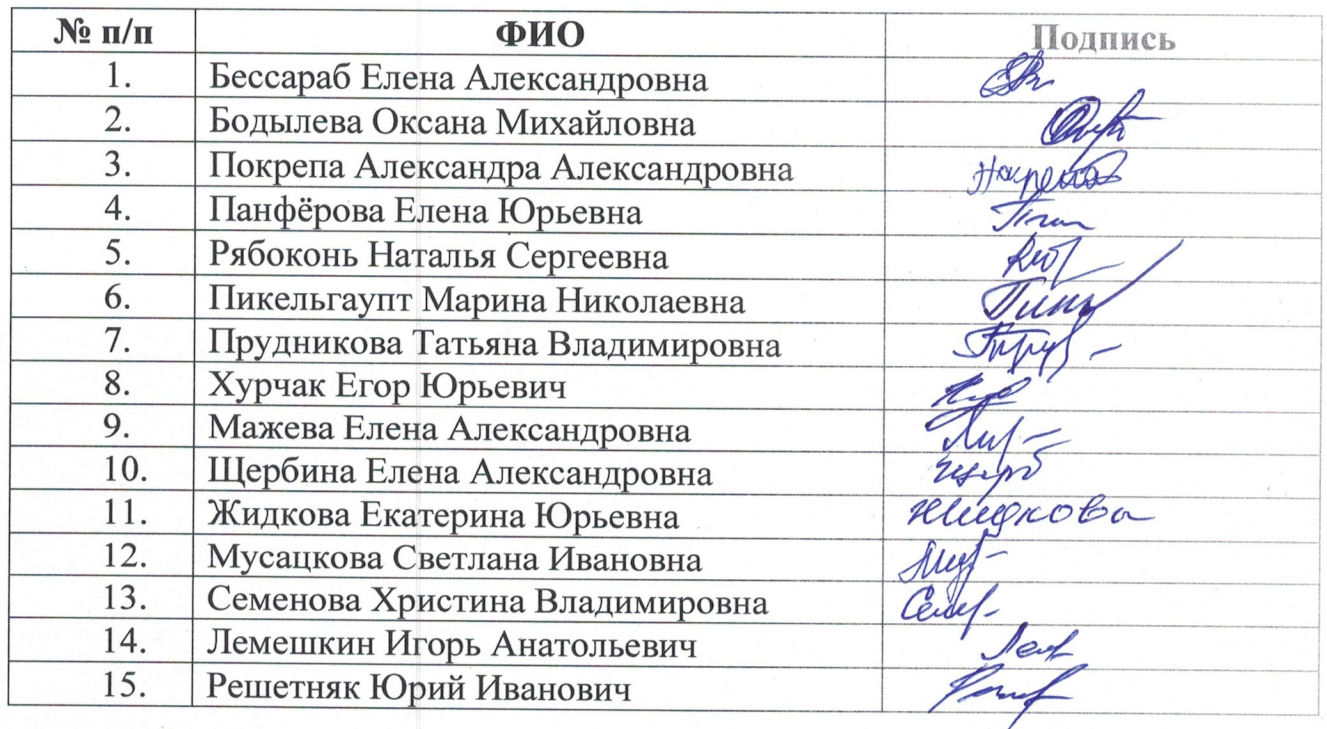 № п/п ФИО Подпись
1. Бессараб Елена Александровна
2. Бодылева Оксана Михайловна
3. Покрепа Александра Александровна
4. Панфёрова Елена Юрьевна
5. Рябоконь Наталья Сергеевна
6. Пикельгаупт Марина Николаевна
7. Прудникова Татьяна Владимировна
8. Хурчак Егор Юрьевич
9. Мажева Елена Александровна
10. Щербина Елена Александровна
11. Жидкова Екатерина Юрьевна Жидкова
12. Мусацкова Светлана Ивановна
13. Семенова Христина Владимировна
14. Лемешкин Игорь Анатольевич
15. Решетняк Юрий Иванович